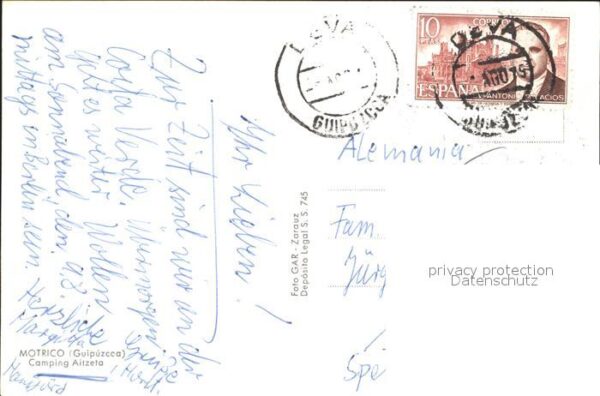 Ihr Lieben!
Zur Zeit sind wir an der
Costa Verde. Übermorgen
geht es weiter. Wollen
am Sonnabend, den 9.8.
mittags in Berlin sein. Herzliche
Grüße
Margrita
Horst
MOTRICO (Guipúzcca)
Camping Aitzeta
Foto GAR - Zarauz
Depósito Legal S. S. 745
DEVA
GUIPUZCOA
10
PTAS
CORREOS
ESPAÑA
ANTONIO PALACIOS
DEVA
AGO 75
GUIPUZCOA
Alemania
Fam.
Jürg
Spe
privacy protection
Datenschutz